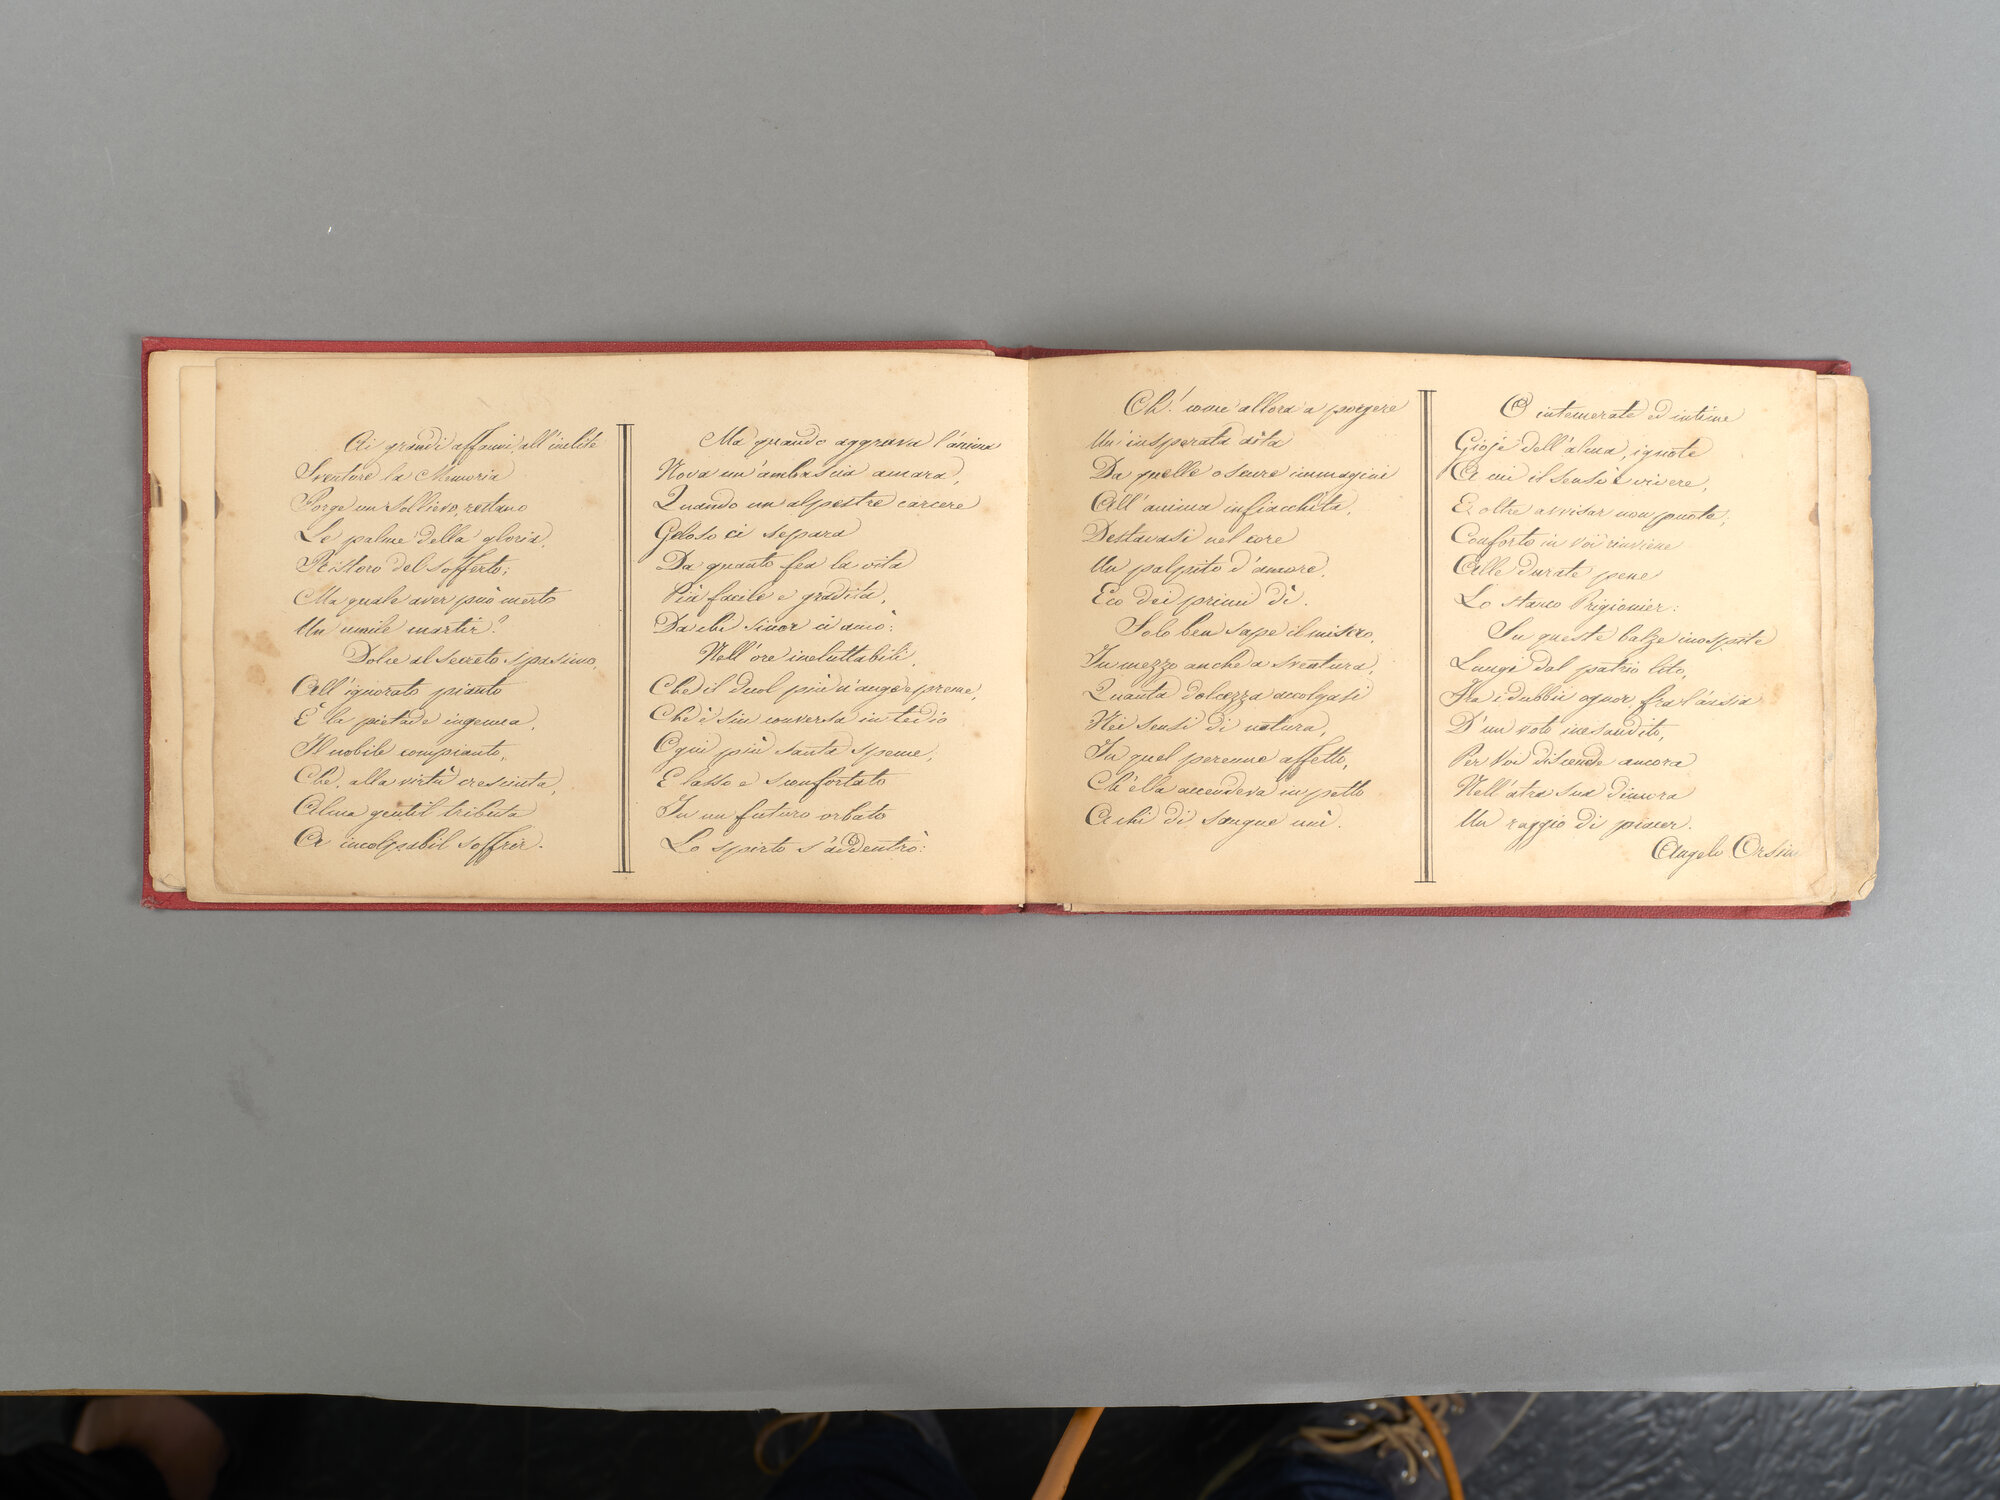 Ai grandi affanni, all'inclite
Sventure la Memoria
Sorge un sollievo, restano
Le palme della gloria,
Ristoro del sofferto;
Ma quale aver può merto
Un umile martir?
Dolce al secreto spasimo,
All'ignorato pianto
È la pietade ingenua,
Il nobile compianto,
Che, alla virtù cresciuta,
Alma gentil tributa
A incolpabil soffrir.
Ma quando aggrava l'anima
Nova un'ambascia amara,
Quando un alpestre carcere
Geloso ci separa
Da quanto fea la vita
Più facile e gradita,
Da chi sinor ci amò:
Nell'ore ineluttabili,
Che il duol più n'ange e preme,
Che è sin conversa in tedio
Ogni più santa speme,
E lasso e sconfortato
In un futuro orbato
Lo spirto s'addentrò:
Oh! come allora a porgere
Un'insperata aita
Da quelle oscure immagini
All'anima infiacchita,
Destavasi nel core
Un palpito d'amore,
Eco dei primi dì.
Solo ben sape il misero,
In mezzo anche a sventura,
Quanta dolcezza accolgasi
Nei sensi di natura,
In quel perenne affetto,
Ch'ella accendeva in petto
A chi di sangue unì.
O intemerate ed intime
Gioje dell'alma, ignote
A cui il senso è vivere,
Ei oltre avvisar non puote;
Conforto in voi rinviene
Alle durate pene
Lo stanco Prigionier:
Su queste balze inospite
Lungi dal patrio lito,
Fra i dubbii ognor, fra l'ansia
D'un voto inesaudito,
Per Voi discende ancora
Nell'atra sua dimora
Un raggio di piacer.
Angelo Orsini